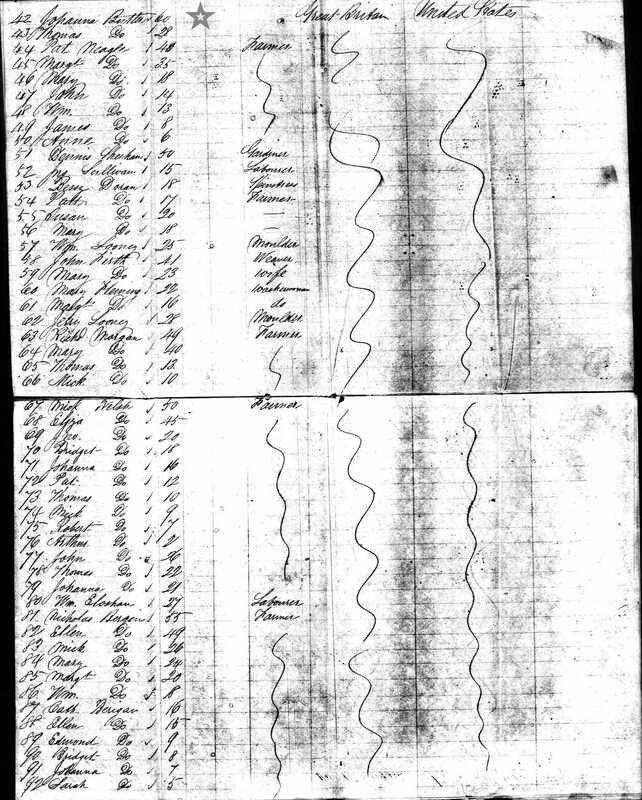 42 Johanna Butler 60 Great Britain United States
43 Thomas Do 28
44 Pat Neagle 40 Farmer
45 Margt Do 35
46 Mary Do 18
47 John Do 14
48 Wm Do 13
49 James Do 8
50 Do 6
51 Dennis Sheehan 50 Gardner
52 Sullivan 15 Labourer
53 Doran 18 Spinstress
54 Path Do 17 Farmer
55 Susan Do 20
56 Mary Do 18
57 Wm Looney 25 Moulder
48 John Firth 41 Weaver
59 Mary Do 23 Wife
60 Mary Fleming 22 Washerwoman
61 Margt Do 16 do
62 Looney 28 Moulder
63 Richd Morgan 49 Farmer
64 Mary Do 40
65 Thomas Do 13
66 Mick Do 10
67 Mick Welsh 50 Farmer
68 Eliza Do 45
69 Jno. Do 20
70 Bridget Do 18
71 Johanna Do 16
72 Pat Do 12
73 Thomas Do 10
74 Mick Do 9
75 Robert Do 7
76 Arthur Do 2
77 John Do 26
78 Thomas Do 22
79 Johanna Do 21
80 Wm 27 Labourer
81 Nicholas Bergan 55 Farmer
82 Ellen Do 49
83 Mick Do 26
84 Mary Do 24
85 Margt Do 20
86 Wm Do 18
87 Cath Bergan 16
88 Ellen Do 15
89 Edmond Do 9
90 Bridget Do 8
91 Johanna Do 7
92 Sarah Do 5